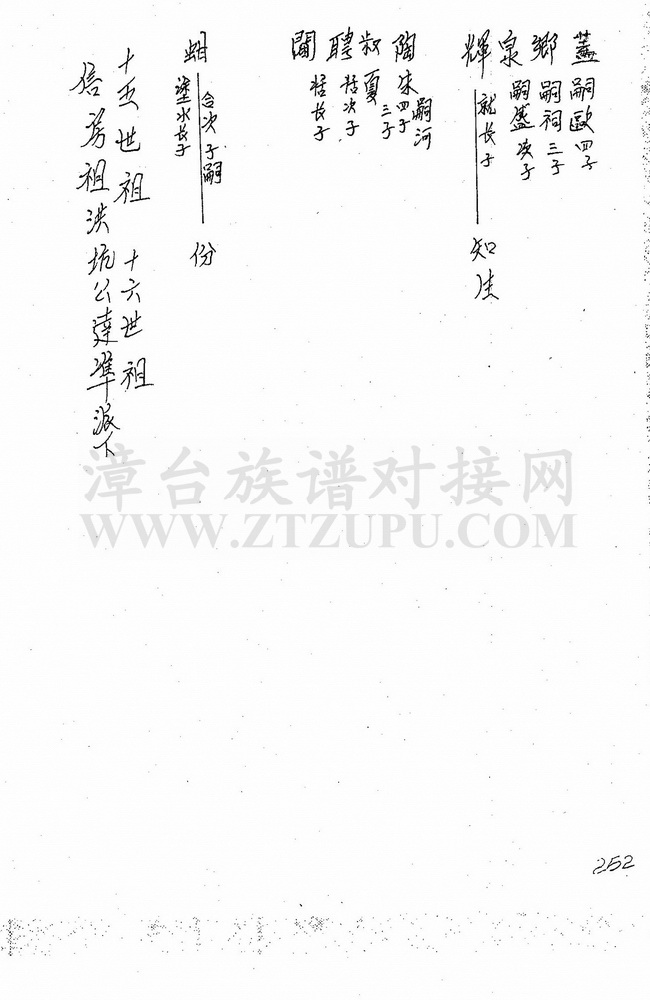 蓋嗣歐四子
鄉嗣祠三子
泉嗣盛次子
輝就长子
知生
陶朱四子嗣河
叔夏三子
聘恬次子
闊恬长子
蚶
合次子嗣
塗水长子
份
十五世祖 十六世祖
信房祖洪坑公達準派下
漳台族谱对接网
WWW.ZTZUPU.COM
252